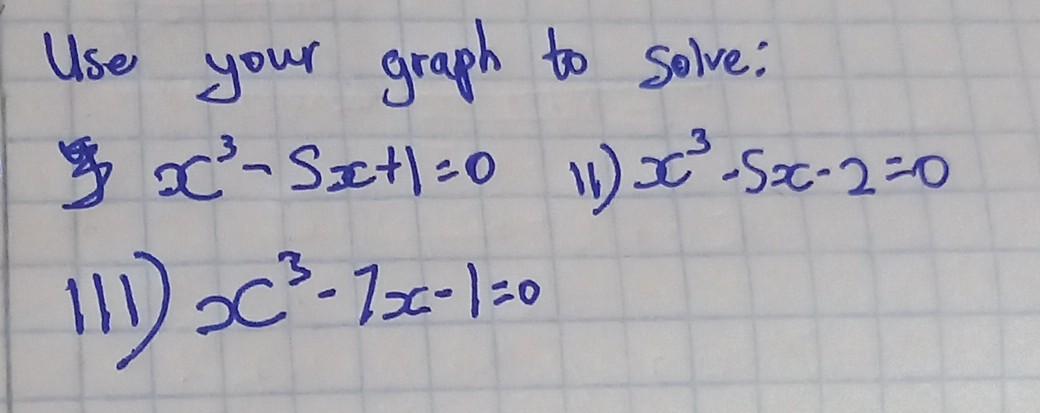 Use your graph to solve:
x³ - 5x + 1 = 0 11) x³ - 5x - 2 = 0
111) x³ - 7x - 1 = 0